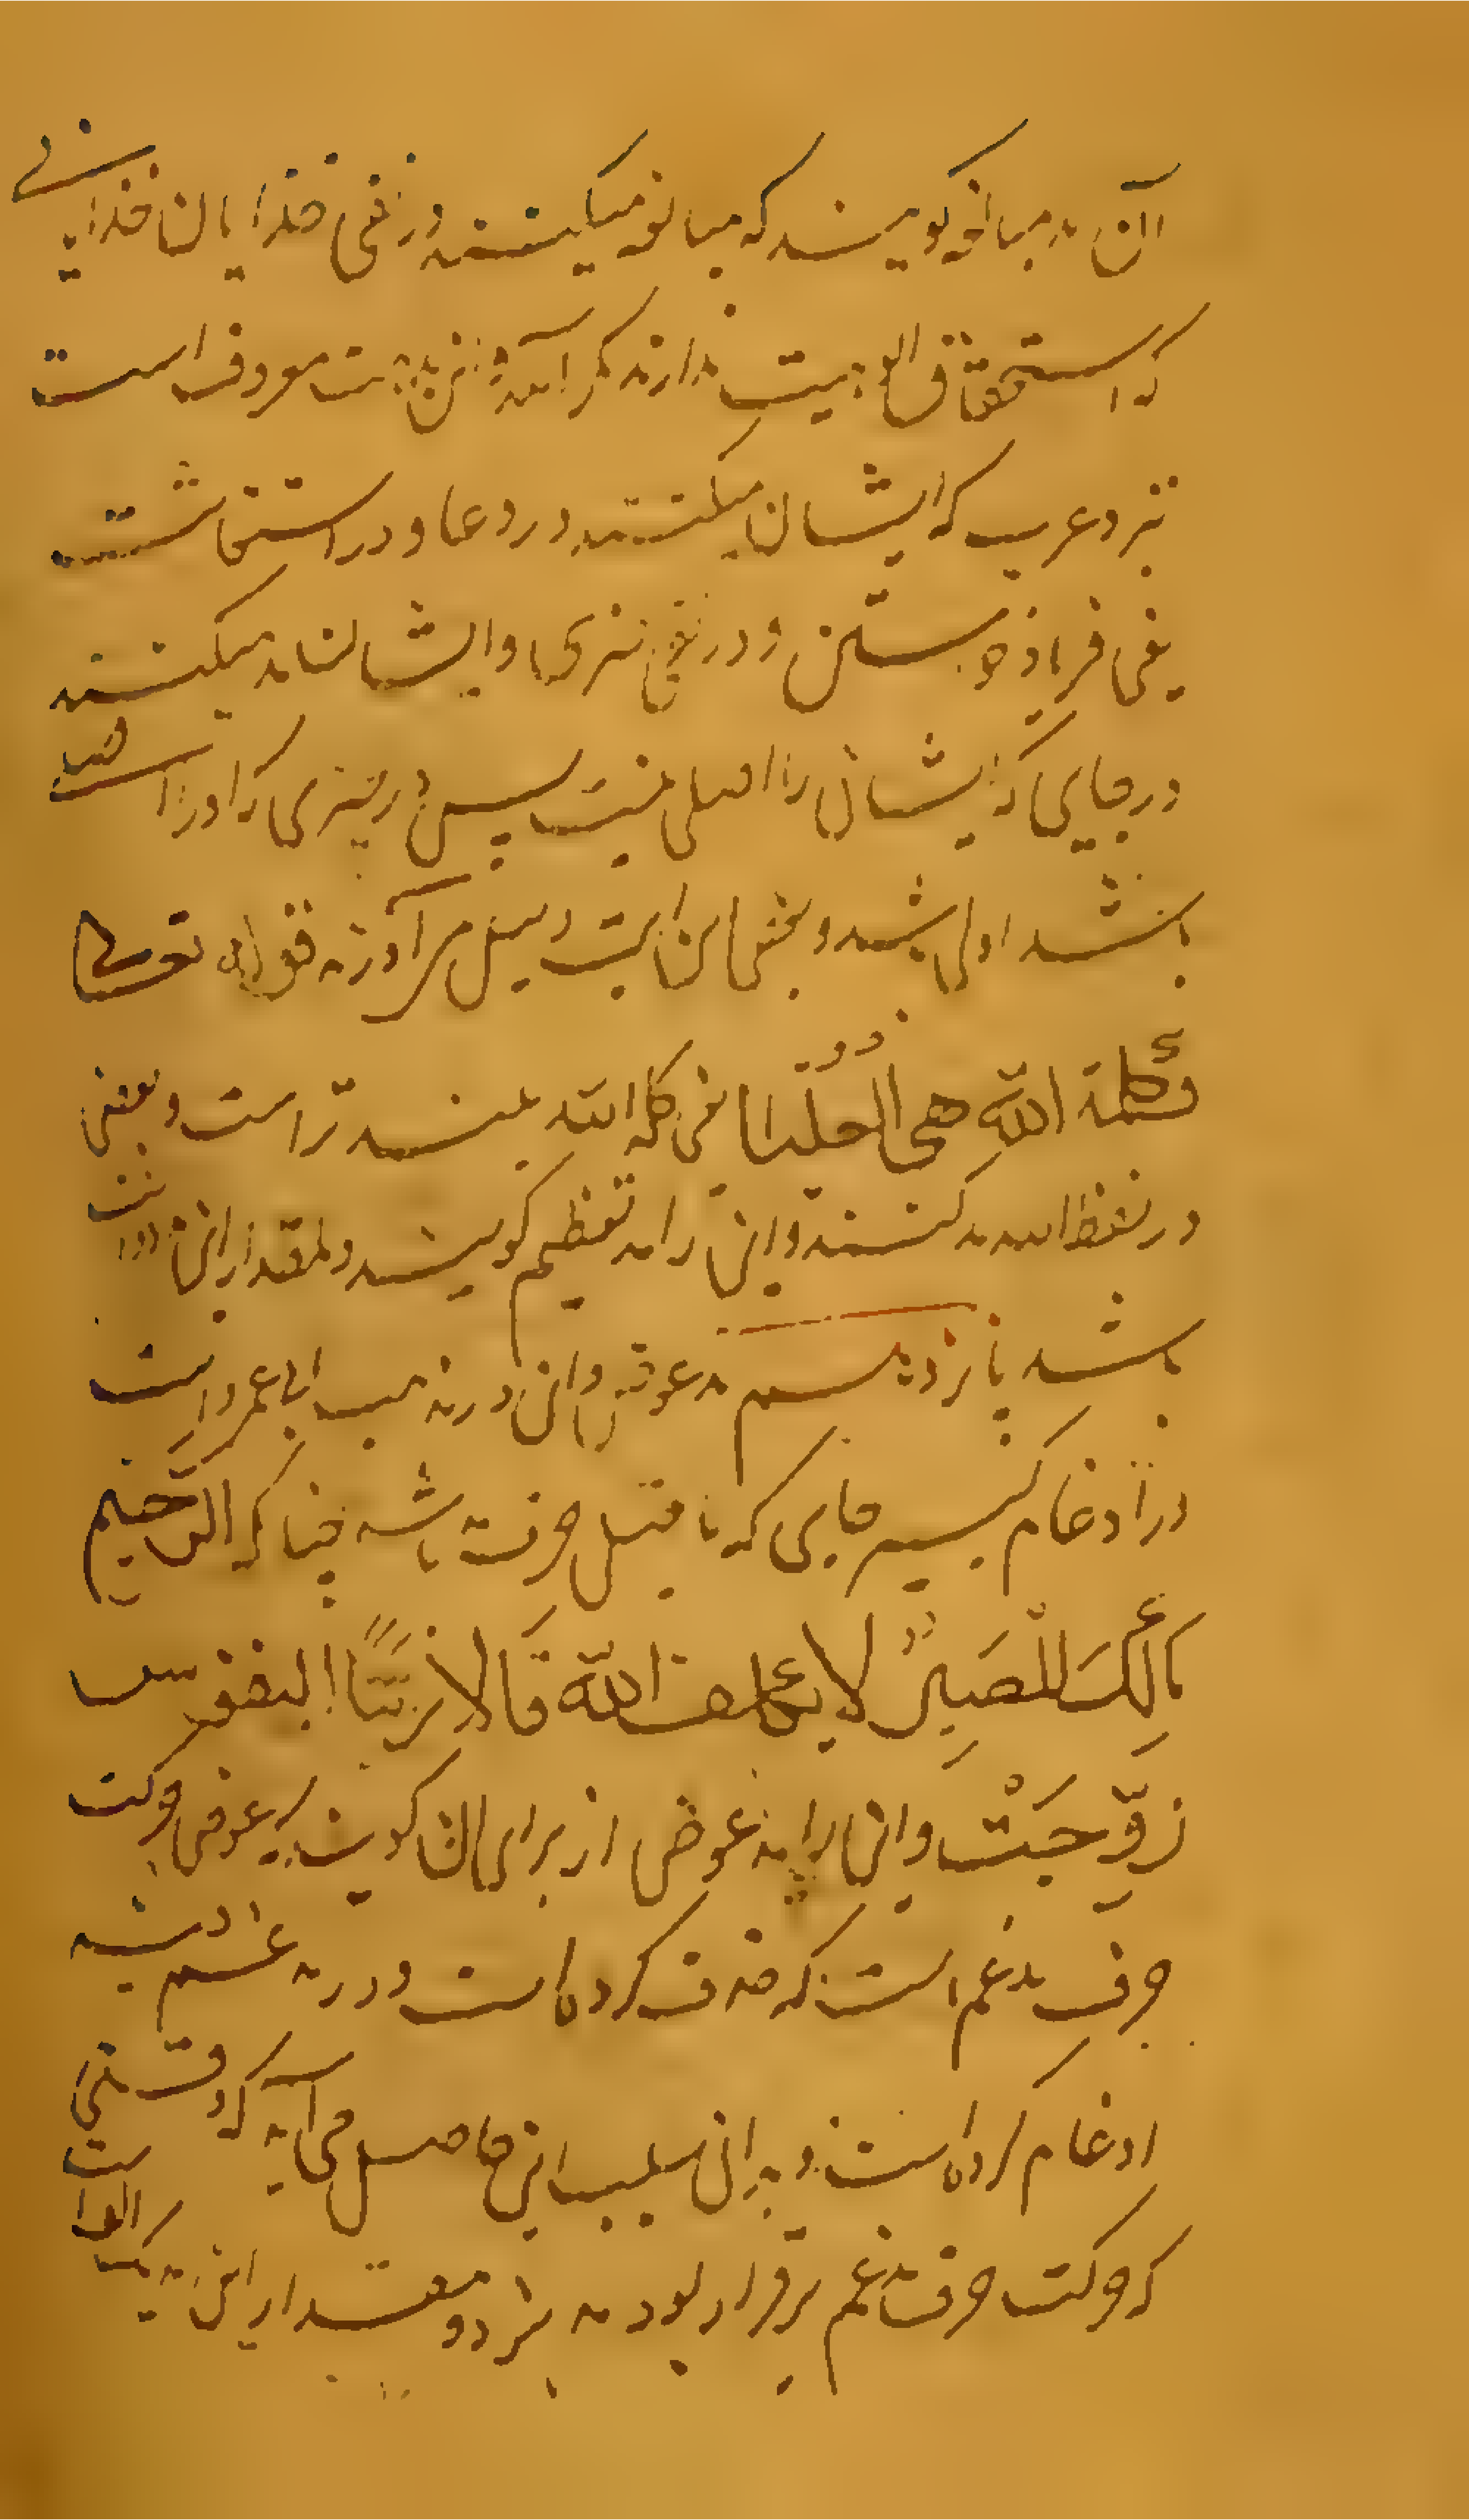 آن مد مبالغه گویند که مبالغه میکنند در نفی خدایان خدایی
که استحقاق الوهیت ندارند مگر الله و این مد است معروف است
نزد عرب که ایشان میکنند در دعا و در استغاثت
یعنی فریاد خواستن و در نفی چیزی و ایشان مد میکنند
در جایی که ایشان را اصلی نیست پس در چیزی که او را اصلست
باشد اولی باشد و بعضی این است دلیل مرآورند قوله تعالی
وكلمة الله هي العليا یعنی کلمه الله بلند تر است و بعضی
در لفظ الله مد کنند و این را مد تعظیم گویند و مقدار این دو الف
باشد پانزدهم مد عوض و این در مذهب ابی عمرو است
در ادغام کبیر جایی که ما قبل حرف مد باشد چنانکه الرحیم
مالك المصير لا يكلف الله قال ربنا النفوس
زوجت و این را مد عوض از برای آن گویند که عوض حرکت
حرف مدغم است که حذف کرده است و در مدغم فیه
ادغام کرده است و بدان سبب این حاصل می آید که وقتی
که حرکت حرف مدغم برقرار بود مد نبود و مقدار این مد یک الف است